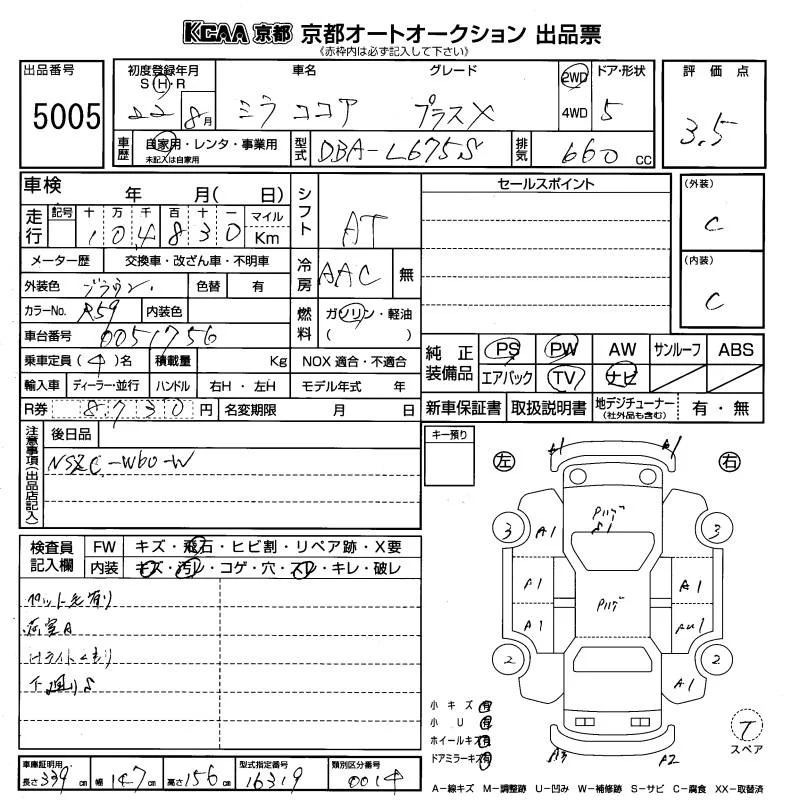 KCAA 京都 京都オートオークション 出品票
《赤枠内は必ず記入して下さい》
出品番号 初度登録年月 車名 グレード 2WD ドア・形状 評価点
S・H・R
5005 22 8月 ミラ ココア プラスX 4WD 5 3.5
車歴 自家用・レンタ・事業用 型式 DBA-L675S 排気 660 cc
未記入は自家用
車検 年 月( 日) シフト AT セールスポイント (外装)
走行 記号 十 万 千 百 十 一 マイル C
1 0 4 8 3 0 Km
メーター歴 交換車・改ざん車・不明車 冷房 AAC 無 (内装)
外装色 ブラウン 色替 有 C
カラーNo. R59 内装色 燃料 ガソリン・軽油
車台番号 0051756 ( )
乗車定員(4)名 積載量 Kg NOX 適合・不適合 純正装備品 PS PW AW サンルーフ ABS
輸入車 ディーラー・並行 ハンドル 右H・左H モデル年式 年 エアバック TV ナビ
R券 8730円 名変期限 月 日 新車保証書 取扱説明書 地デジチューナー 有・無
(社外品も含む)
注意事項(出品店記入) 後日品 キー預り
NSZC-W60-W 左 右
検査員記入欄 FW キズ・飛石・ヒビ割・リペア跡・X要
内装 キズ・汚レ・コゲ・穴・スレ・キレ・破レ
Hライトくもり
下廻りS
3 3
A1 S1
A1 A1
A1
2 2
A1
小キズ 有
小U 有
ホイールキズ 有
ドアミラーキズ 有
A3 A2
T
スペア
車庫証明用 型式指定番号 類別区分番号
長さ 339 cm 幅 147 cm 高さ 156 cm 16319 0014
A−線キズ M−調整跡 U−凹み W−補修跡 S−サビ C−腐食 XX−取替済